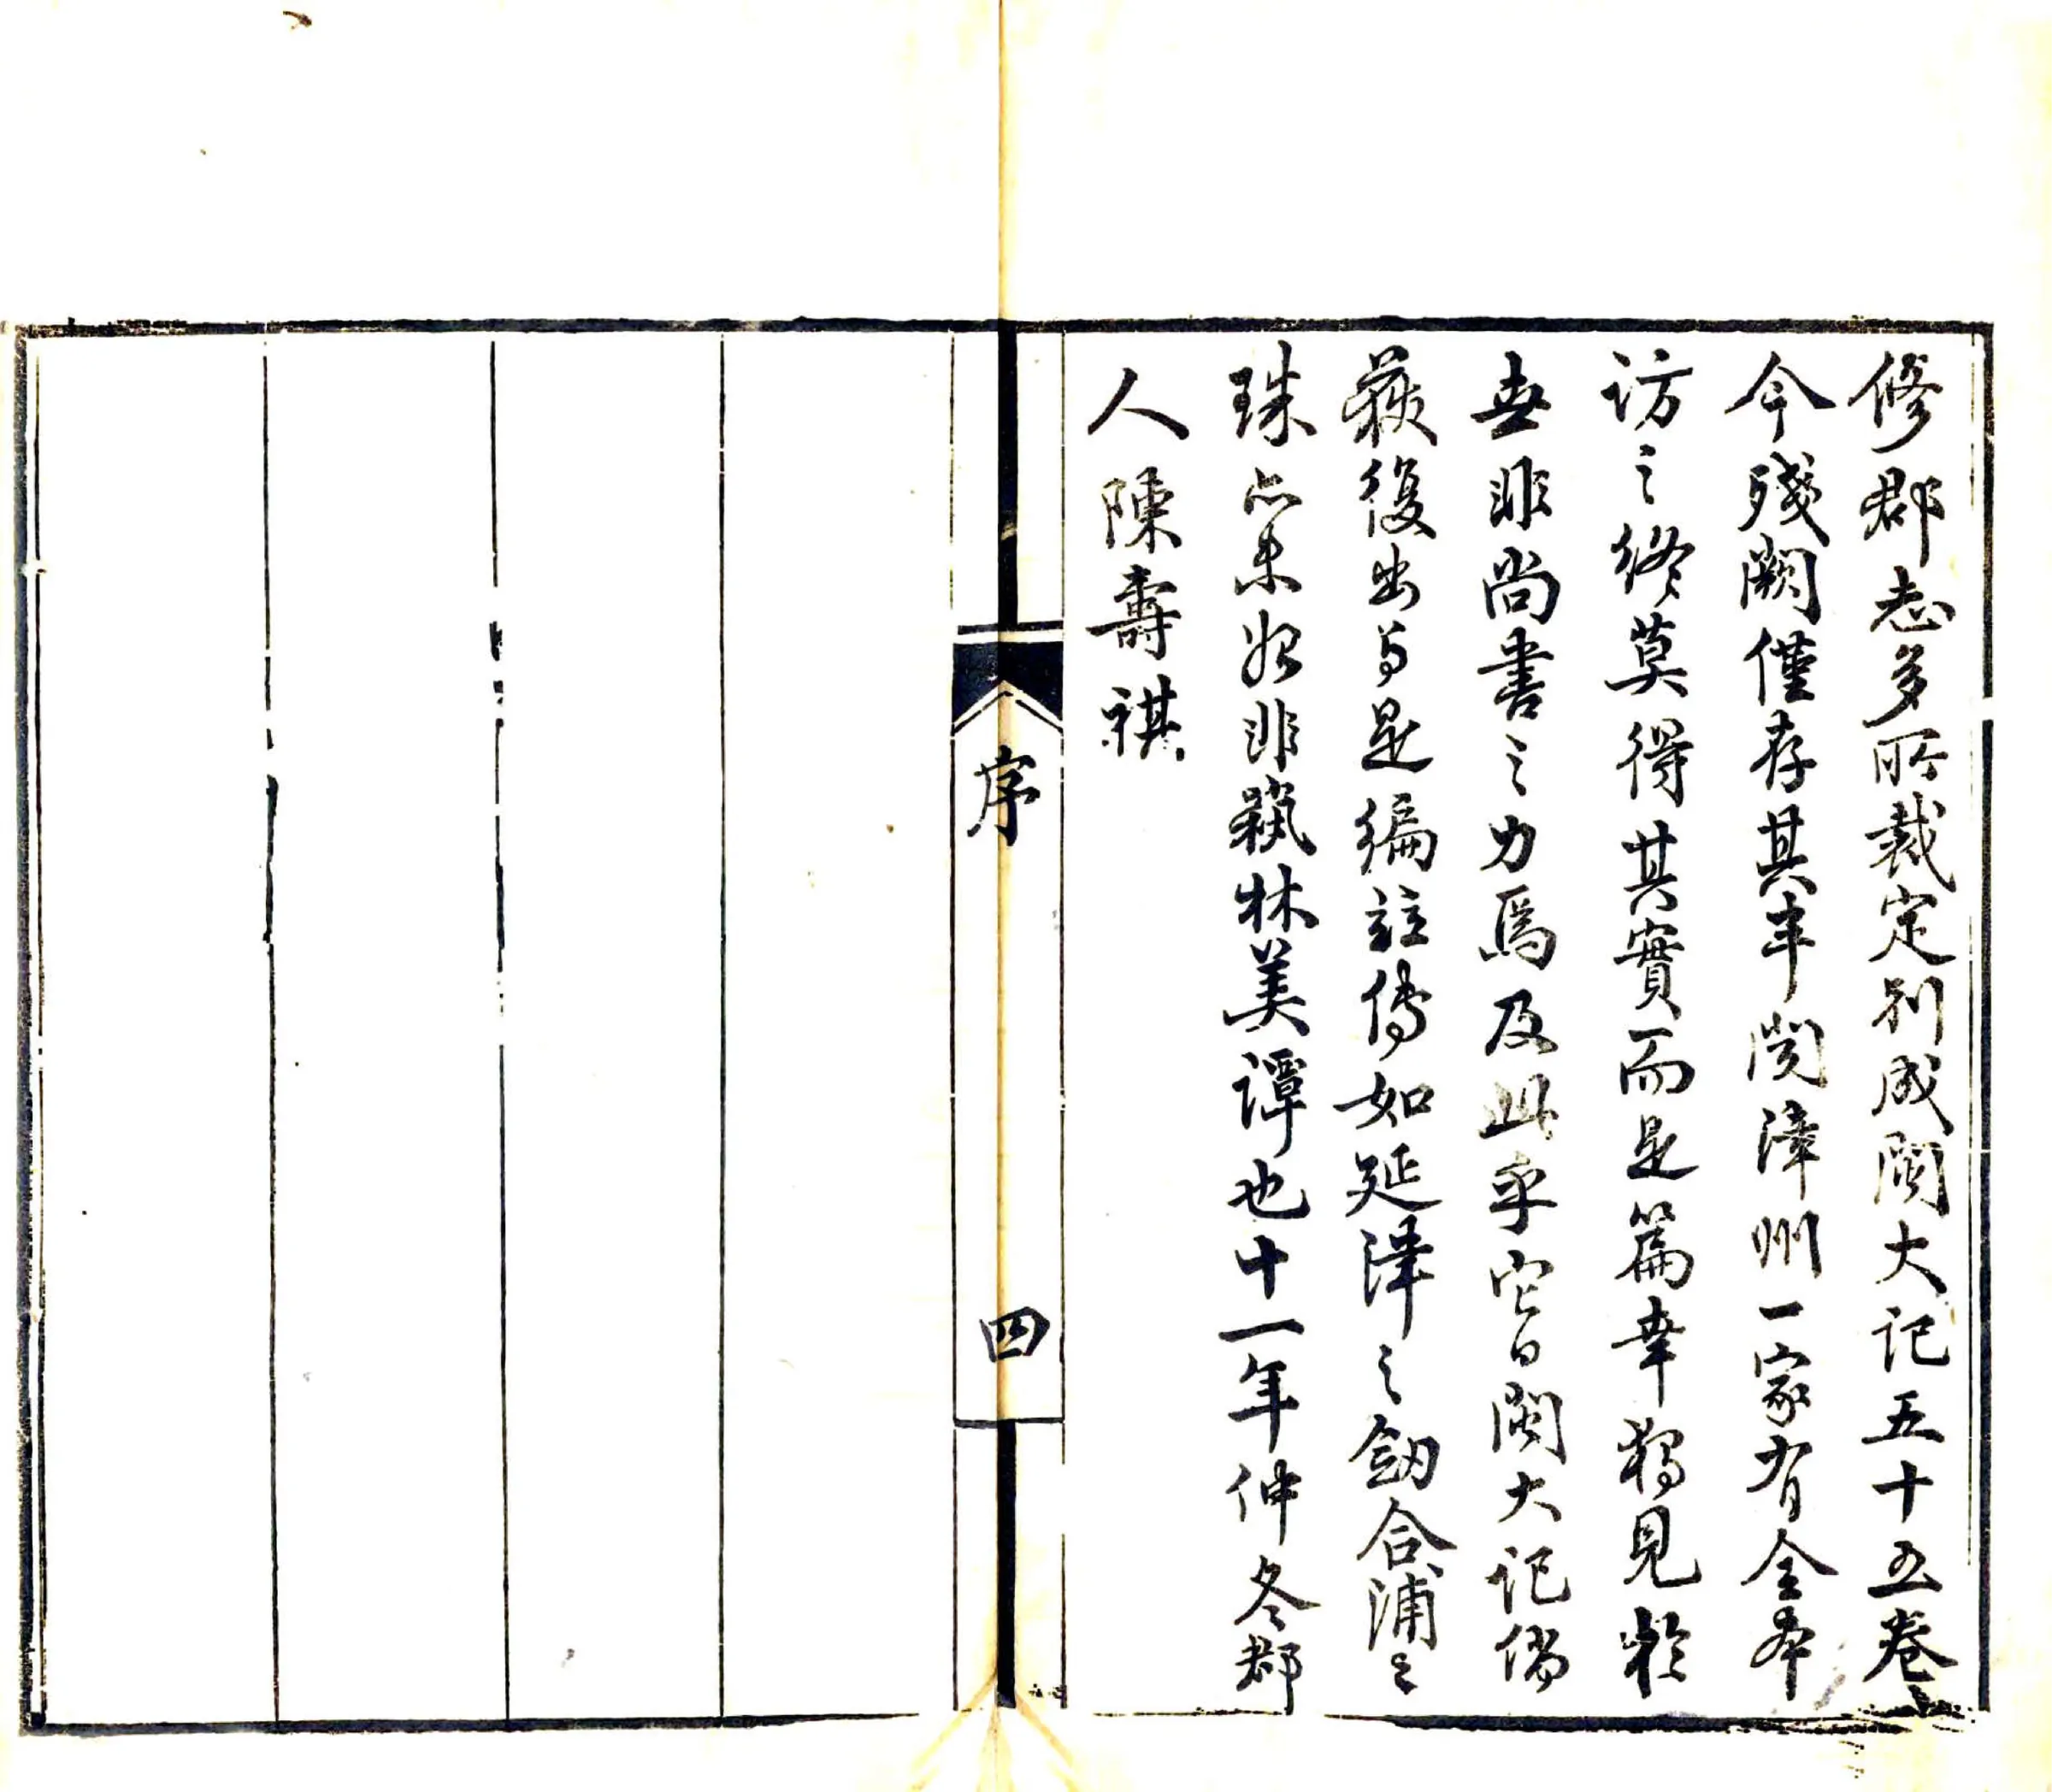 修郡志多所裁定別成閩大记五十五卷
今殘闕僅存其半闻漳州一家有全本
访之终莫得其實而是篇幸獨見於
世非尚書之力焉及此乎它日閩大记倘
獲復出与是编並傳如延津之劔合浦之
珠亦未始非藝林美譚也十一年仲冬郡
人陳壽祺
序
四